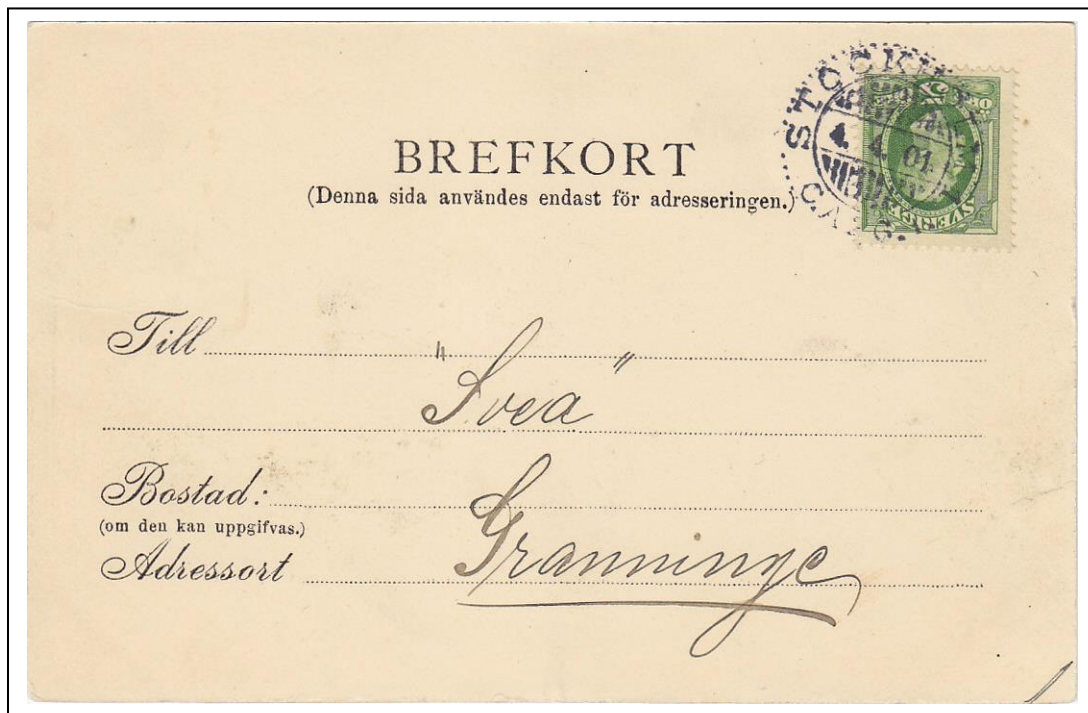 STOCKHOLM
4. 4. 01
C.A.2.G.
SVERIGE
BREFKORT
(Denna sida användes endast för adresseringen.)
Till "Svea"
Bostad:
(om den kan uppgifvas.)
Adressort Granninge